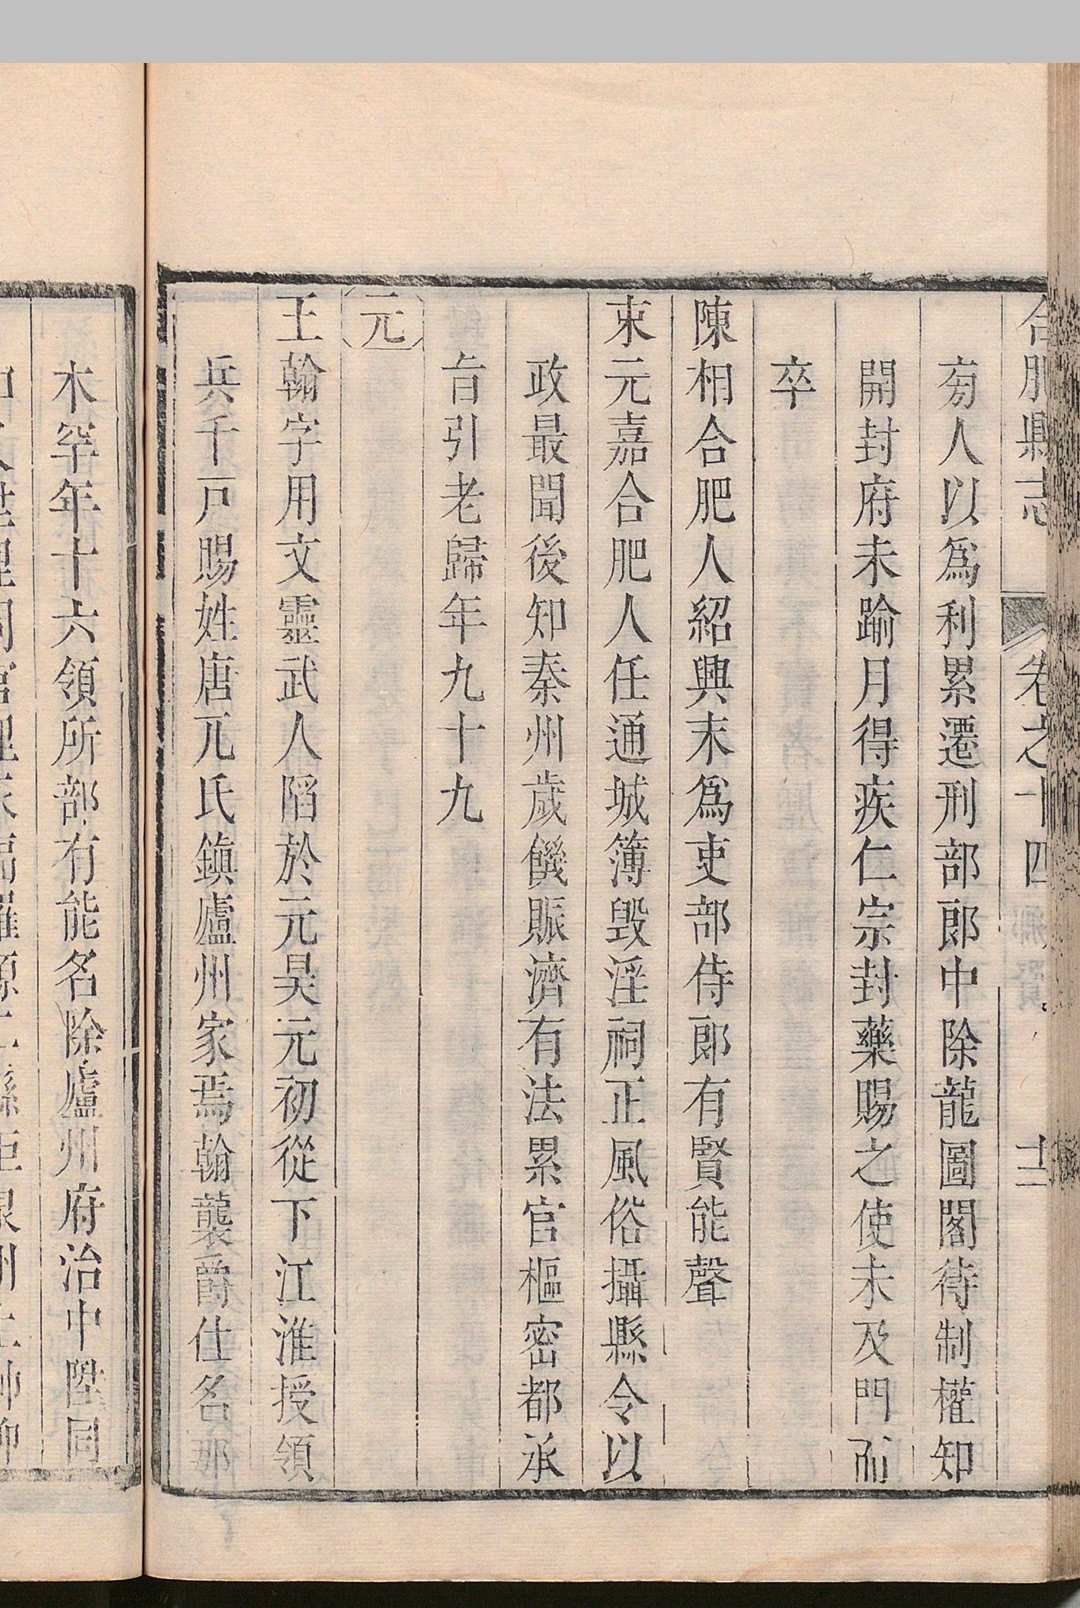 合肥縣志 卷之十四 鄉賢 十二
穷人以爲利累遷刑部郎中除龍圖閣待制權知
開封府未踰月得疾仁宗封藥賜之使未及門而
卒
陳相合肥人紹興末爲吏部侍郎有賢能聲
束元嘉合肥人任通城簿毀淫祠正風俗攝縣令以
政最聞後知秦州歲饑賑濟有法累官樞密都承
旨引老歸年九十九
元
王翰字用文靈武人陷於元昊元初從下江淮授領
兵千戸賜姓唐兀氏鎮廬州家焉翰襲爵仕名那
木罕年十六領所部有能名除廬州府治中陞同